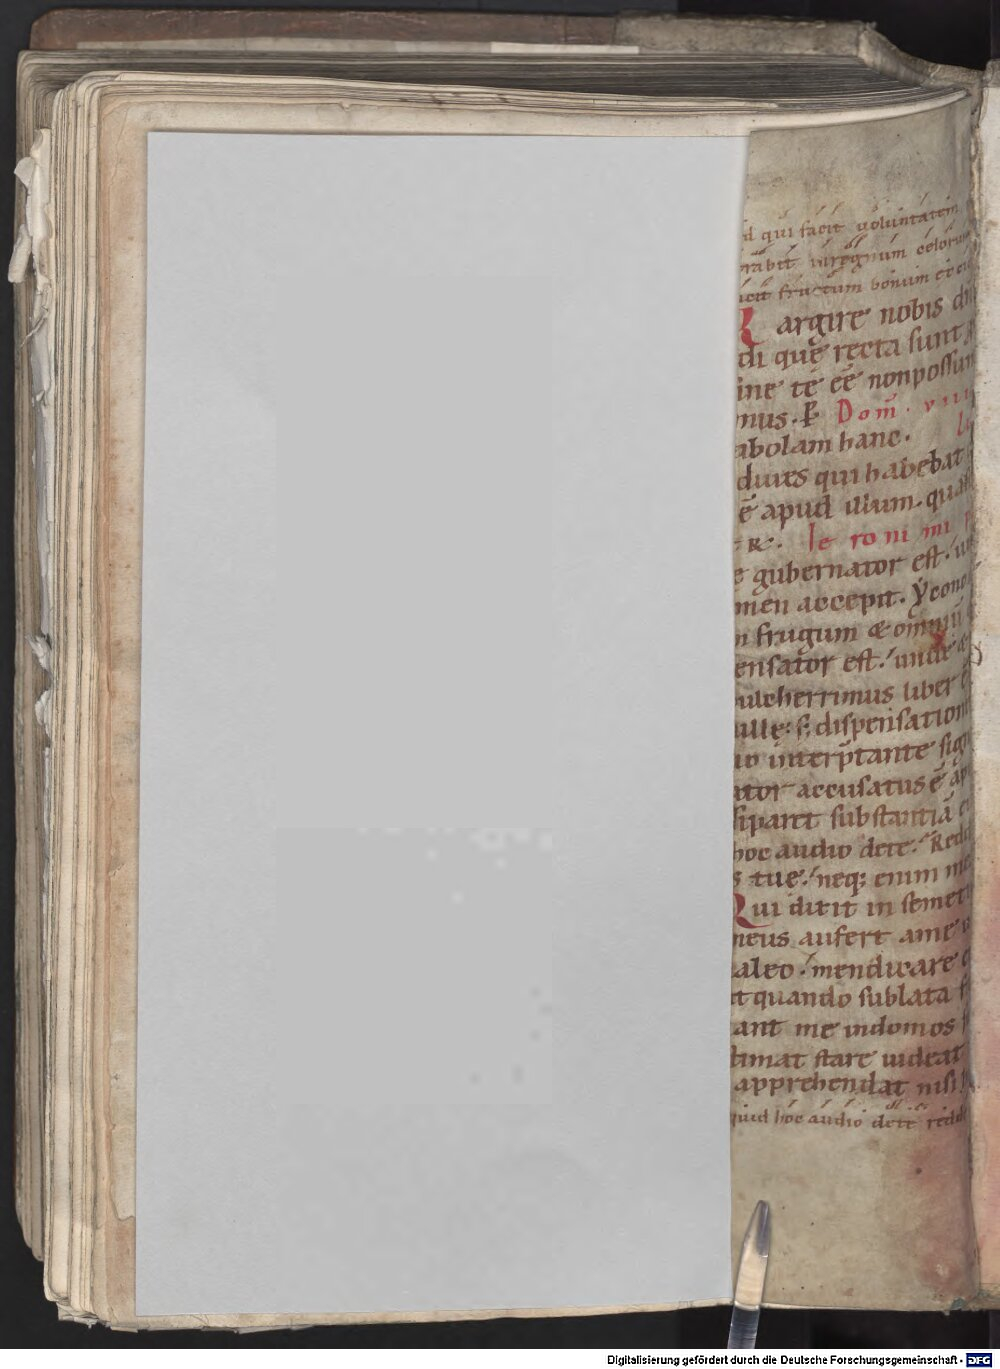 d qui facit uoluntatem
rabit inregnum celorum
fructum bonum
argire nobis
di quę recta sunt
ine te ēē nonpossum
mus. Dom̄. viiii
abolam hanc.
diues qui habebat
ē apud illum. quasi
Ieronimi
e gubernator est.
men accepit. ẏcono
n frugum & omniū
ensator est. unde
ulcherrimus liber
ille: s; dispensation
io interp̄tante sig
ator accusatus ē ap
siparet substantiā
hoc audio dete. Redd
s tue. neq; enim
ui dixit in semet
meus aufert ame
aleo. mendicare
t quando sublata
ant me indomos
timat stare uideat
apprehendat nisi
quid hoc audio dete redd
Digitalisierung gefördert durch die Deutsche Forschungsgemeinschaft - DFG